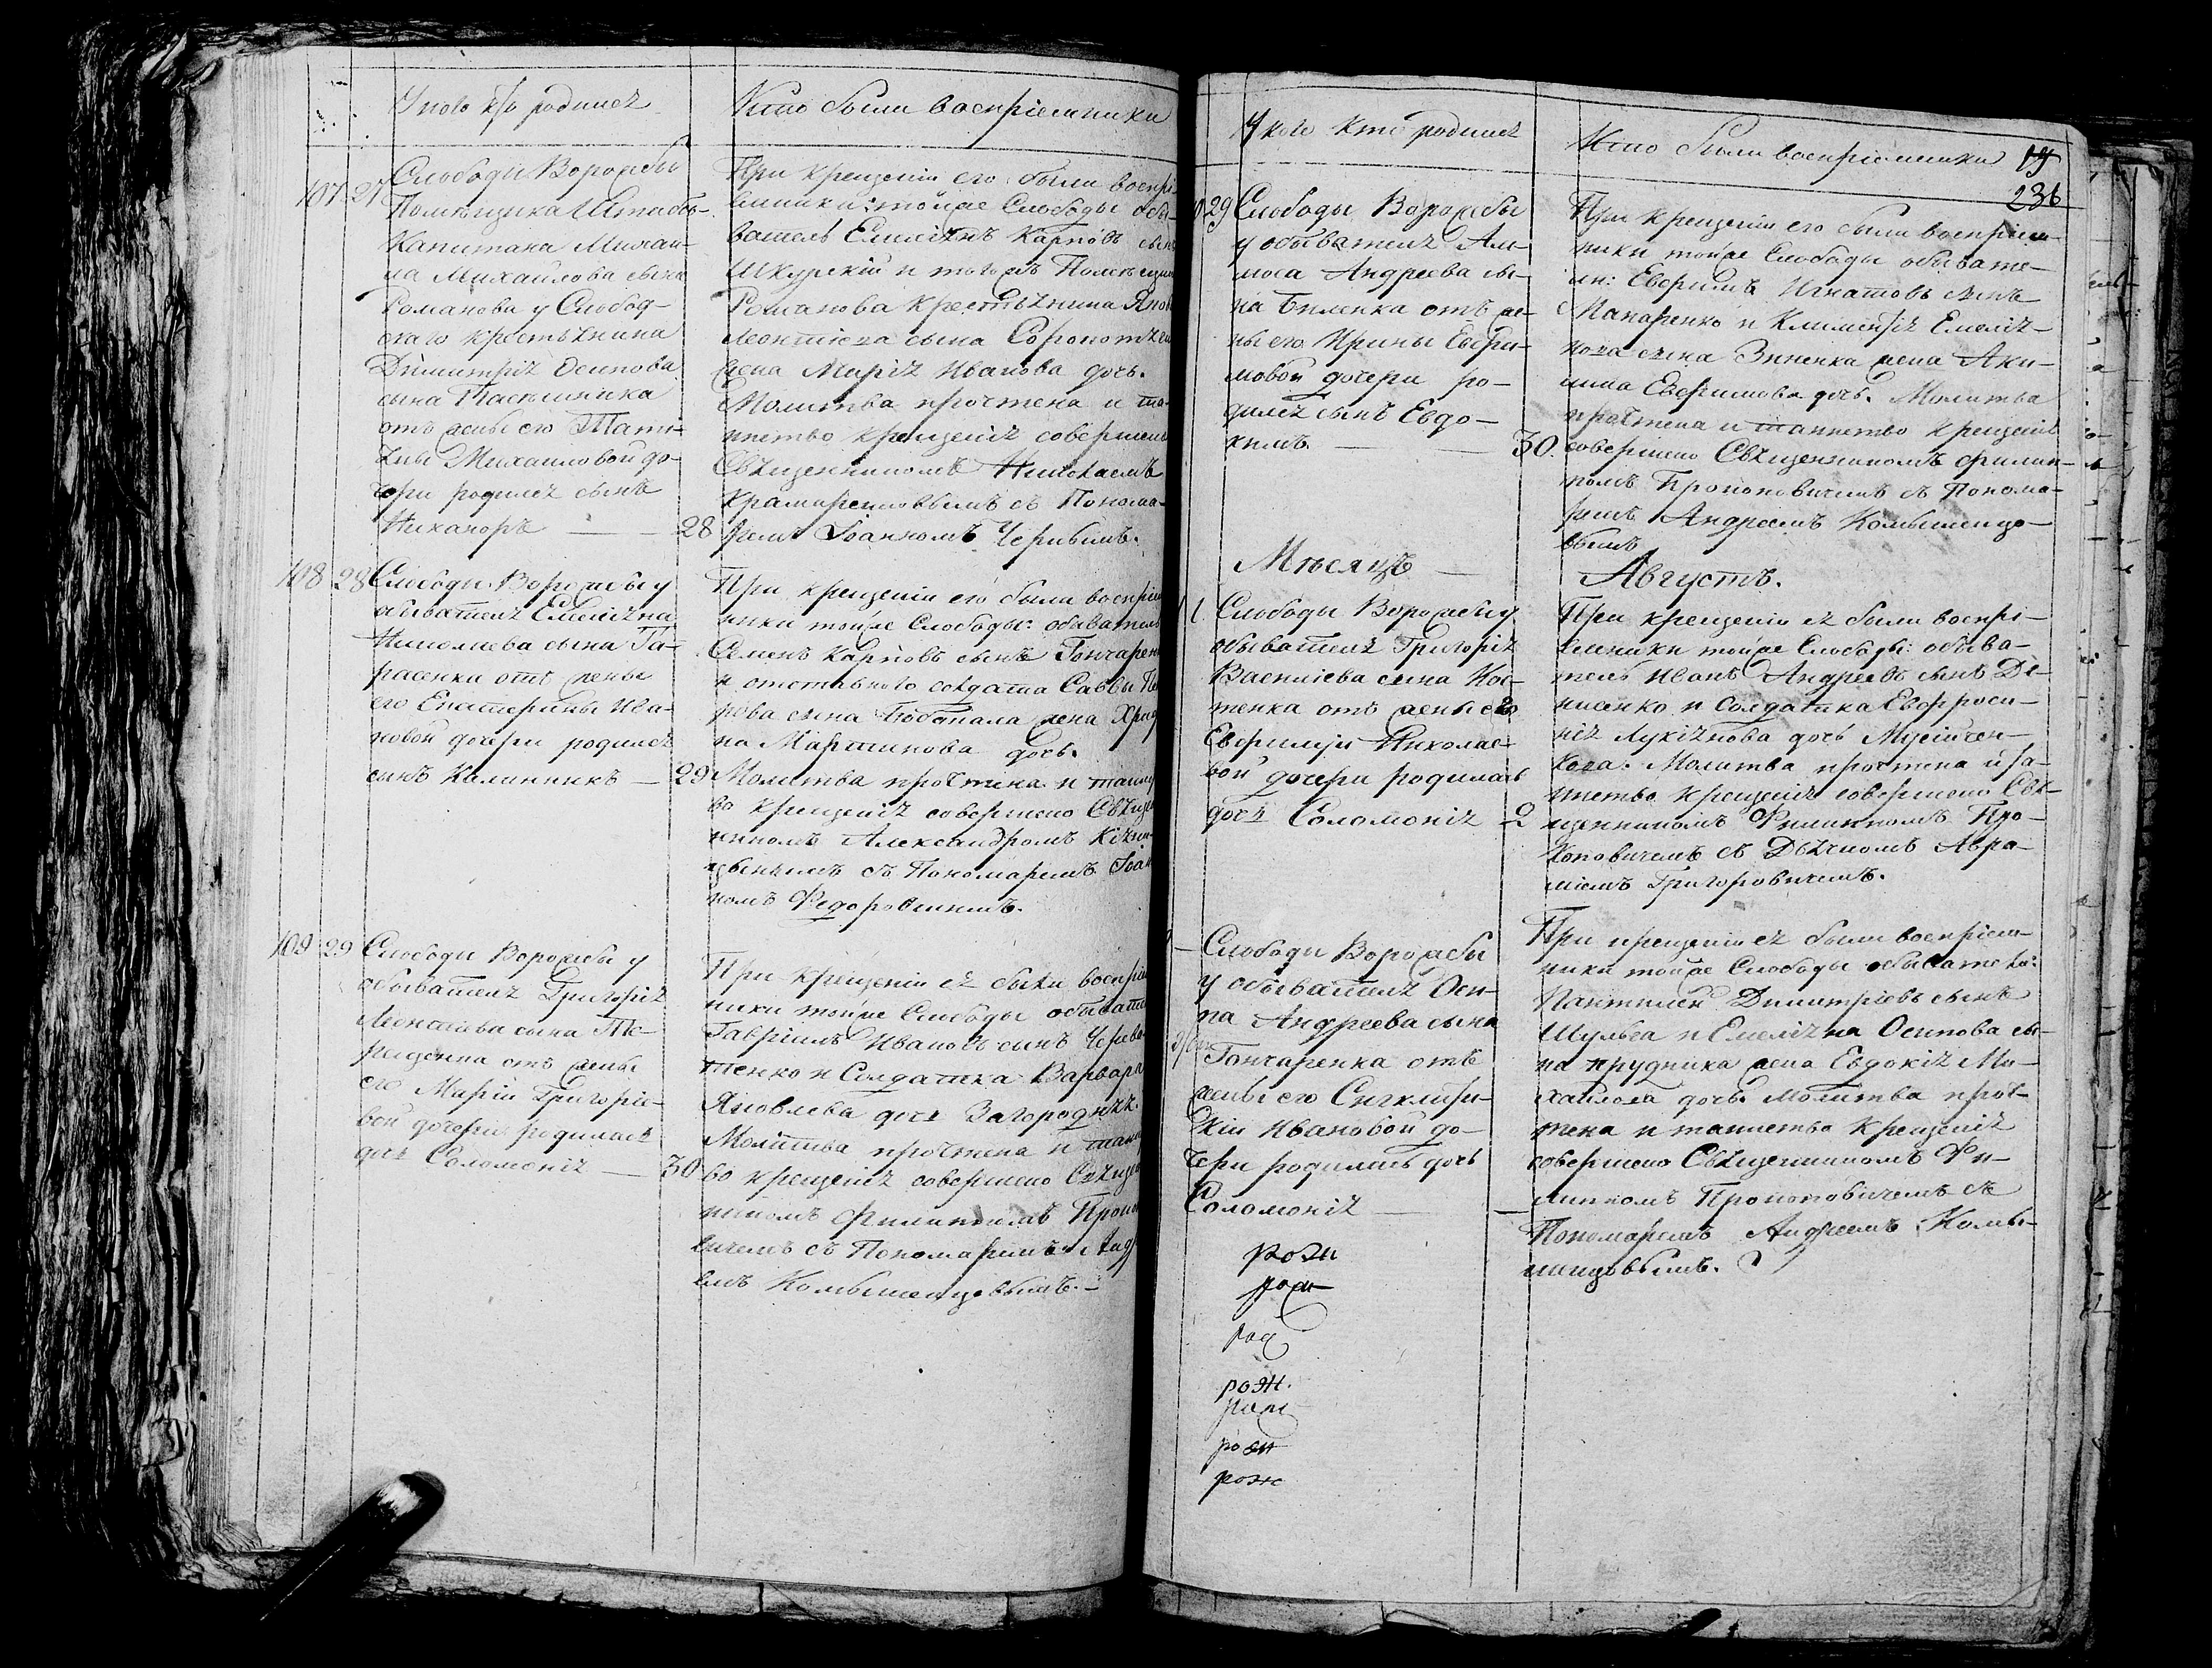 У кого кто родился
Кто были восприемники
107 27 Слободы Ворожбы
Помѣщика Штабсъ-
Капитана Михаи-
ла Михайлова сына
Романова у Слобод-
скаго крестьянина
Димитрія Осипова
сына Пасѣшника
отъ жены его Тать-
яны Михайловой до-
чери родился сынъ
Никаноръ — — 28
При крещеніи его были воспрі-
емники: тойже Слободы обы-
ватель Емеліянъ Карповъ сынъ
Шкурскій и тогожъ Помѣщика
Романова крестьянина
Леонтіева сына
жена Марія Иванова дочь.
Молитва прочтена и та-
инство крещенія совершено
Священникомъ Николаемъ
Крамаренковымъ съ Понома-
ремъ Іоанномъ
108 28 Слободы Ворожбы у
обывателя Емеліяна
Николаева сына Та-
расенка отъ жены
его Екатерины Ива-
новой дочери родился
сынъ Калинникъ — 29
При крещеніи его были воспріем
ники тойже Слободы: обыватель
Семенъ Карповъ сынъ Гончарен
и отставного солдата Саввы Пе
рова сына жена Хрис
на Мартинова дочь.
Молитва прочтена и таинст
во крещенія совершено Священ
никомъ Александромъ
съ Пономаремъ Іоан
номъ Федоровскимъ.
109 29 Слободы Ворожбы у
обывателя Григорія
Леонтіева сына Те-
рещенка отъ жены
его Маріи Григоріе-
вой дочери родилась
дочь Соломонія — 30
При крещеніи ея были воспріем
ники тойже Слободы обыватель
Гавріилъ Ивановъ сынъ
тенко и Солдатка Варвара
Яковлева дочь
Молитва прочтена и таинст
во крещенія совершено Священ
никомъ Филиппомъ Проко
вичемъ съ Пономаремъ Андре
емъ Колышенцовымъ. —
У кого кто родился
Кто были воспріемники 19
236
29 Слободы Ворожбы
у обывателя Ам-
моса Андреева сы-
на Биленка отъ же-
ны его Ирины Евфи-
мовой дочери ро-
дился сынъ Евдо-
кимъ. — — 30.
При крещеніи его были воспріем-
ники тойже Слободы обывате-
ли: Евфимъ Игнатовъ сынъ
Макаренко и Климентія Емелія-
нова сына Зиненка жена Аку-
лина Евфимова дочь. Молитва
прочтена и таинство крещенія
совершено Священникомъ Филип-
помъ Прокоповичемъ съ Понома-
ремъ Андреемъ Колышенцо-
вымъ
Мѣсяцъ —
Августъ.
1. Слободы Ворожбы у
обывателя Григорія
Василіева сына Кос-
тенка отъ жены его
Евфиміи Николае-
вой дочери родилась
дочь Соломонія — 2
При крещеніи ея были воспрі-
емники тойже Слободы: обыва-
тель Иванъ Андреевъ сынъ Де-
нисенко и Солдатка Евфроси-
нія Лукіянова дочь
Молитва прочтена и та-
инство крещенія совершено Свя-
щенникомъ Филиппомъ Про-
коповичемъ съ Дьячкомъ Авра-
міемъ Григоровичемъ.
— Слободы Ворожбы
у обывателя Оси-
па Андреева сына
Гончаренка отъ
жены его Сигклити-
кіи Ивановой до-
чери родилась дочь
Соломонія — —
При крещеніи ея были воспріем-
ники тойже Слободы обыватель:
Пантилей Димитріевъ сынъ
Шульга и Емеліяна Осипова сы-
на прудника жена Евдокія Ми-
хайлова дочь Молитва проч-
тена и таинство крещенія
совершено Священникомъ Фи-
липпомъ Прокоповичемъ съ
Пономаремъ Андреемъ Колы-
шенцовымъ.
рож
рож
рож
рож.
рож
рож
рож